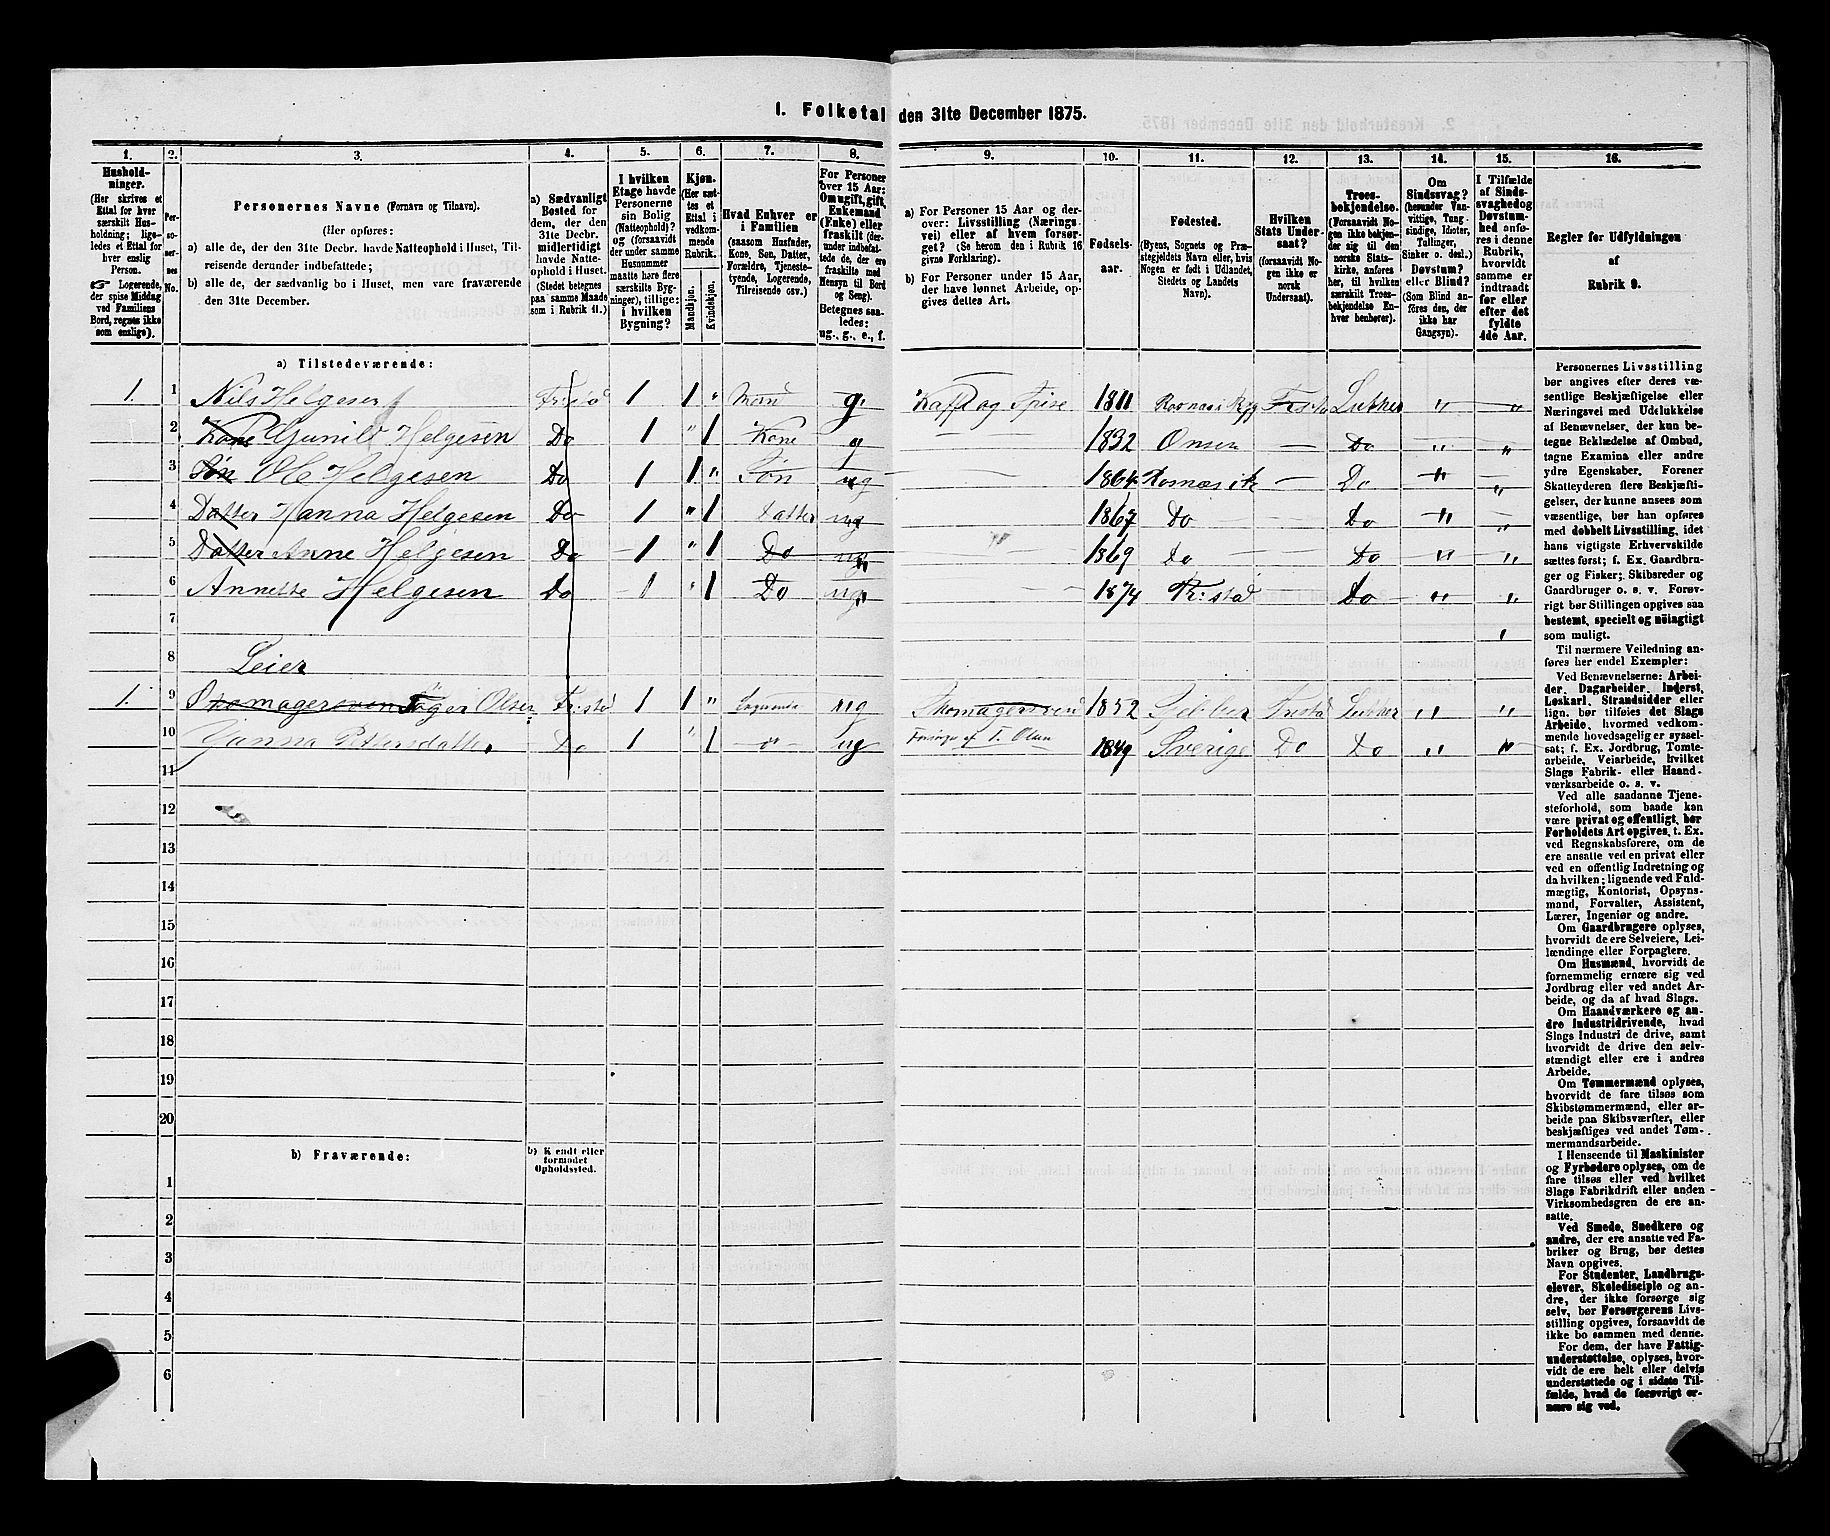 1. Folketal den 31te December 1875.
1. 2. 3. 4. 5. 6. 7. 8. 9. 10. 11. 12. 13. 14. 15. 16.
Hushold-
ninger.
(Her skrives et
Ettal for hver
særskilt Hus-
holdning; lige-
ledes et Ettal for
hver enslig
Person.
☞ Logerende,
der spise Middag
ved Familiens
Bord, regnes ikke
som enslige).
Per-
so-
ner-
nes
No.
Personernes Navne (Fornavn og Tilnavn).
(Her opføres:
a) alle de, der den 31te Decbr. havde Natteophold i Huset, Til-
reisende derunder indbefattede;
b) alle de, der sædvanlig bo i Huset, men vare fraværende
den 31te December.
a) Sædvanligt
Bosted for
dem, der den
31te Decbr.
midlertidigt
havde Natte-
ophold i Huset.
(Stedet betegnes
paa samme Maade
som i Rubrik 11.)
I hvilken
Etage havde
Personerne
sin Bolig
(Natteophold)?
og (forsaavidt
der under samme
Husnummer
maatte høre flere
særskilte Byg-
ninger), tillige:
i hvilken
Bygning?
Kjøn.
(Her sæt-
tes et
Ettal i
vedkom-
mende
Rubrik.
Mandkjøn.
Kvindekjøn.
Hvad Enhver er
i Familien
(saasom Husfader,
Kone, Søn, Datter,
Forældre, Tjeneste-
tyende, Logerende,
Tilreisende osv.)
For Personer
over 15 Aar:
Om ugift, gift,
Enkemand
(Enke) eller
fraskilt (der-
under indbefat-
tede de, der ere
fraskilte med
Hensyn til Bord
og Seng).
Betegnes saa-
ledes:
ug., g., e., f.
a) For Personer 15 Aar og der-
over: Livsstilling (Nærings-
vei) eller af hvem forsør-
get? (Se herom den i Rubrik 16
givne Forklaring).
b) For Personer under 15 Aar,
der have lønnet Arbeide, op-
gives dettes Art.
Fødsels-
aar.
Fødested.
(Byens, Sognets og Præ-
stegjeldets Navn, eller, hvis
Nogen er født i Udlandet,
Stedets og Landets
Navn).
Hvilken
Stats Under-
saat?
(forsaavidt No-
gen ikke er
norsk
Undersaat).
Troes-
bekjendelse.
(Forsaavidt No-
gen ikke bekjen-
der sig til den
norske Stats-
kirke, anføres
her, til hvilken
særskilt Troes-
bekjendelse En-
hver henhører).
Om
Sindssvag?
(herunder Van-
vittige, Tung-
sindige, Idioter,
Tullinger,
Sinker o. desl.)
Døvstum?
eller Blind?
(Som Blind an-
føres den, der
ikke har
Gangsyn).
I Tilfælde
af Sinds-
svaghed og
Døvstum-
hed anfø-
res i denne
Rubrik,
hvorvidt
samme er
indtraadt
før eller
efter det
fyldte
4de Aar.
Regler for Udfyldningen
af
Rubrik 9.
a) Tilstedeværende:
1. 1 Nils Helgesen Fr:stad 1 1 " Mand g. Kaffe og Spise 1811 Fr:stad Luther " "
2 Kone Gunild Helgesen Do 1 " 1 Kone g — 1832 Onsø — Do " "
3 Søn Ole Helgesen Do 1 1 " Søn ug — 1864 — Do " "
4 Datter Hanna Helgesen Do 1 " 1 Datter ug 1867 Do — Do " "
5 Datter Anne Helgesen Do 1 " 1 Do ug 1869 Do — Do " "
6 Annette Helgesen Do 1 " 1 Do ug — 1874 Fr:stad Do " "
7 "
8 Leier
1. 9 Skomagersven Olsen Fr:stad 1 1 " Logerende ug Skomagersvend 1852 Luther " "
10 Pettersdatter Do 1 " 1 ug Forsørges af T. Olsen 1849 Sverige Do Do " "
11
12
13
14
15
16
17
18
19
20
b) Fraværende:
b) Kjendt eller
formodet
Opholdssted.
1
2
3
4
5
6
Personernes Livsstilling
bør angives efter deres væ-
sentlige Beskjæftigelse eller
Næringsvei med Udelukkelse
af Benævnelser, der kun be-
tegne Beklædelse af Ombud,
tagne Examina eller andre
ydre Egenskaber. Forener
Skatteyderen flere Beskjæfti-
gelser, der kunne ansees som
væsentlige, bør han opføres
med dobbelt Livsstilling, idet
hans vigtigste Erhvervskilde
sættes først; f. Ex. Gaardbru-
ger og Fisker; Skibsreder og
Gaardbruger o. s. v. Forøv-
rigt bør Stillingen opgives saa
bestemt, specielt og nøiagtigt
som muligt.
Til nærmere Veiledning an-
føres her endel Exempler:
Ved Benævnelserne: Arbei-
der, Dagarbeider, Inderst,
Løskarl, Strandsidder eller
lign. bør tilføies det Slags
Arbeide, hvormed vedkom-
mende hovedsagelig er syssel-
sat; f. Ex. Jordbrug, Tomte-
arbeide, Veiarbeide, hvilket
Slags Fabrik- eller Haand-
værksarbeide o. s. v.
Ved alle saadanne Tjene-
steforhold, som baade kan
være privat og offentligt, bør
Forholdets Art opgives, t. Ex.
ved Regnskabsførere, om de
ere ansatte ved en privat eller
ved en offentlig Indretning og
da hvilken; lignende ved Fuld-
mægtig, Kontorist, Opsyns-
mand, Forvalter, Assistent,
Lærer, Ingeniør og andre.
Om Gaardbrugere oplyses,
hvorvidt de ere Selveiere, Lei-
lændinge eller Forpagtere.
Om Husmænd, hvorvidt de
fornemmelig ernære sig ved
Jordbrug eller ved andet Ar-
beide, og da af hvad Slags.
Om Haandværkere og an-
dre Industridrivende, hvad
Slags Industri de drive, samt
hvorvidt de drive den selv-
stændigt eller ere i andres
Arbeide.
Om Tømmermænd oplyses,
hvorvidt de fare tilsøs som
Skibstømmermænd, eller ar-
beide paa Skibsværfter, eller
beskjæftiges ved andet Tøm-
mermandsarbeide.
I Henseende til Maskinister
og Fyrbødere oplyses, om de
fare tilsøs eller ved hvilket
Slags Fabrikdrift eller anden
Virksomhedsgren de ere an-
satte.
Ved Smede, Snedkere og
andre, der ere ansatte ved Fa-
briker og Brug, bør dettes
Navn opgives.
For Studenter, Landbrugs-
elever, Skoledisciple og an-
dre, der ikke forsørge sig
selv, bør Forsørgerens Livs-
stilling opgives, forsaavidt de
ikke bo sammen med denne.
For dem, der have Fattig-
understøttelse, oplyses, hvor-
vidt de ere helt eller delvis
understøttede og i sidste Til-
fælde, hvad de forøvrigt er-
nære sig ved.